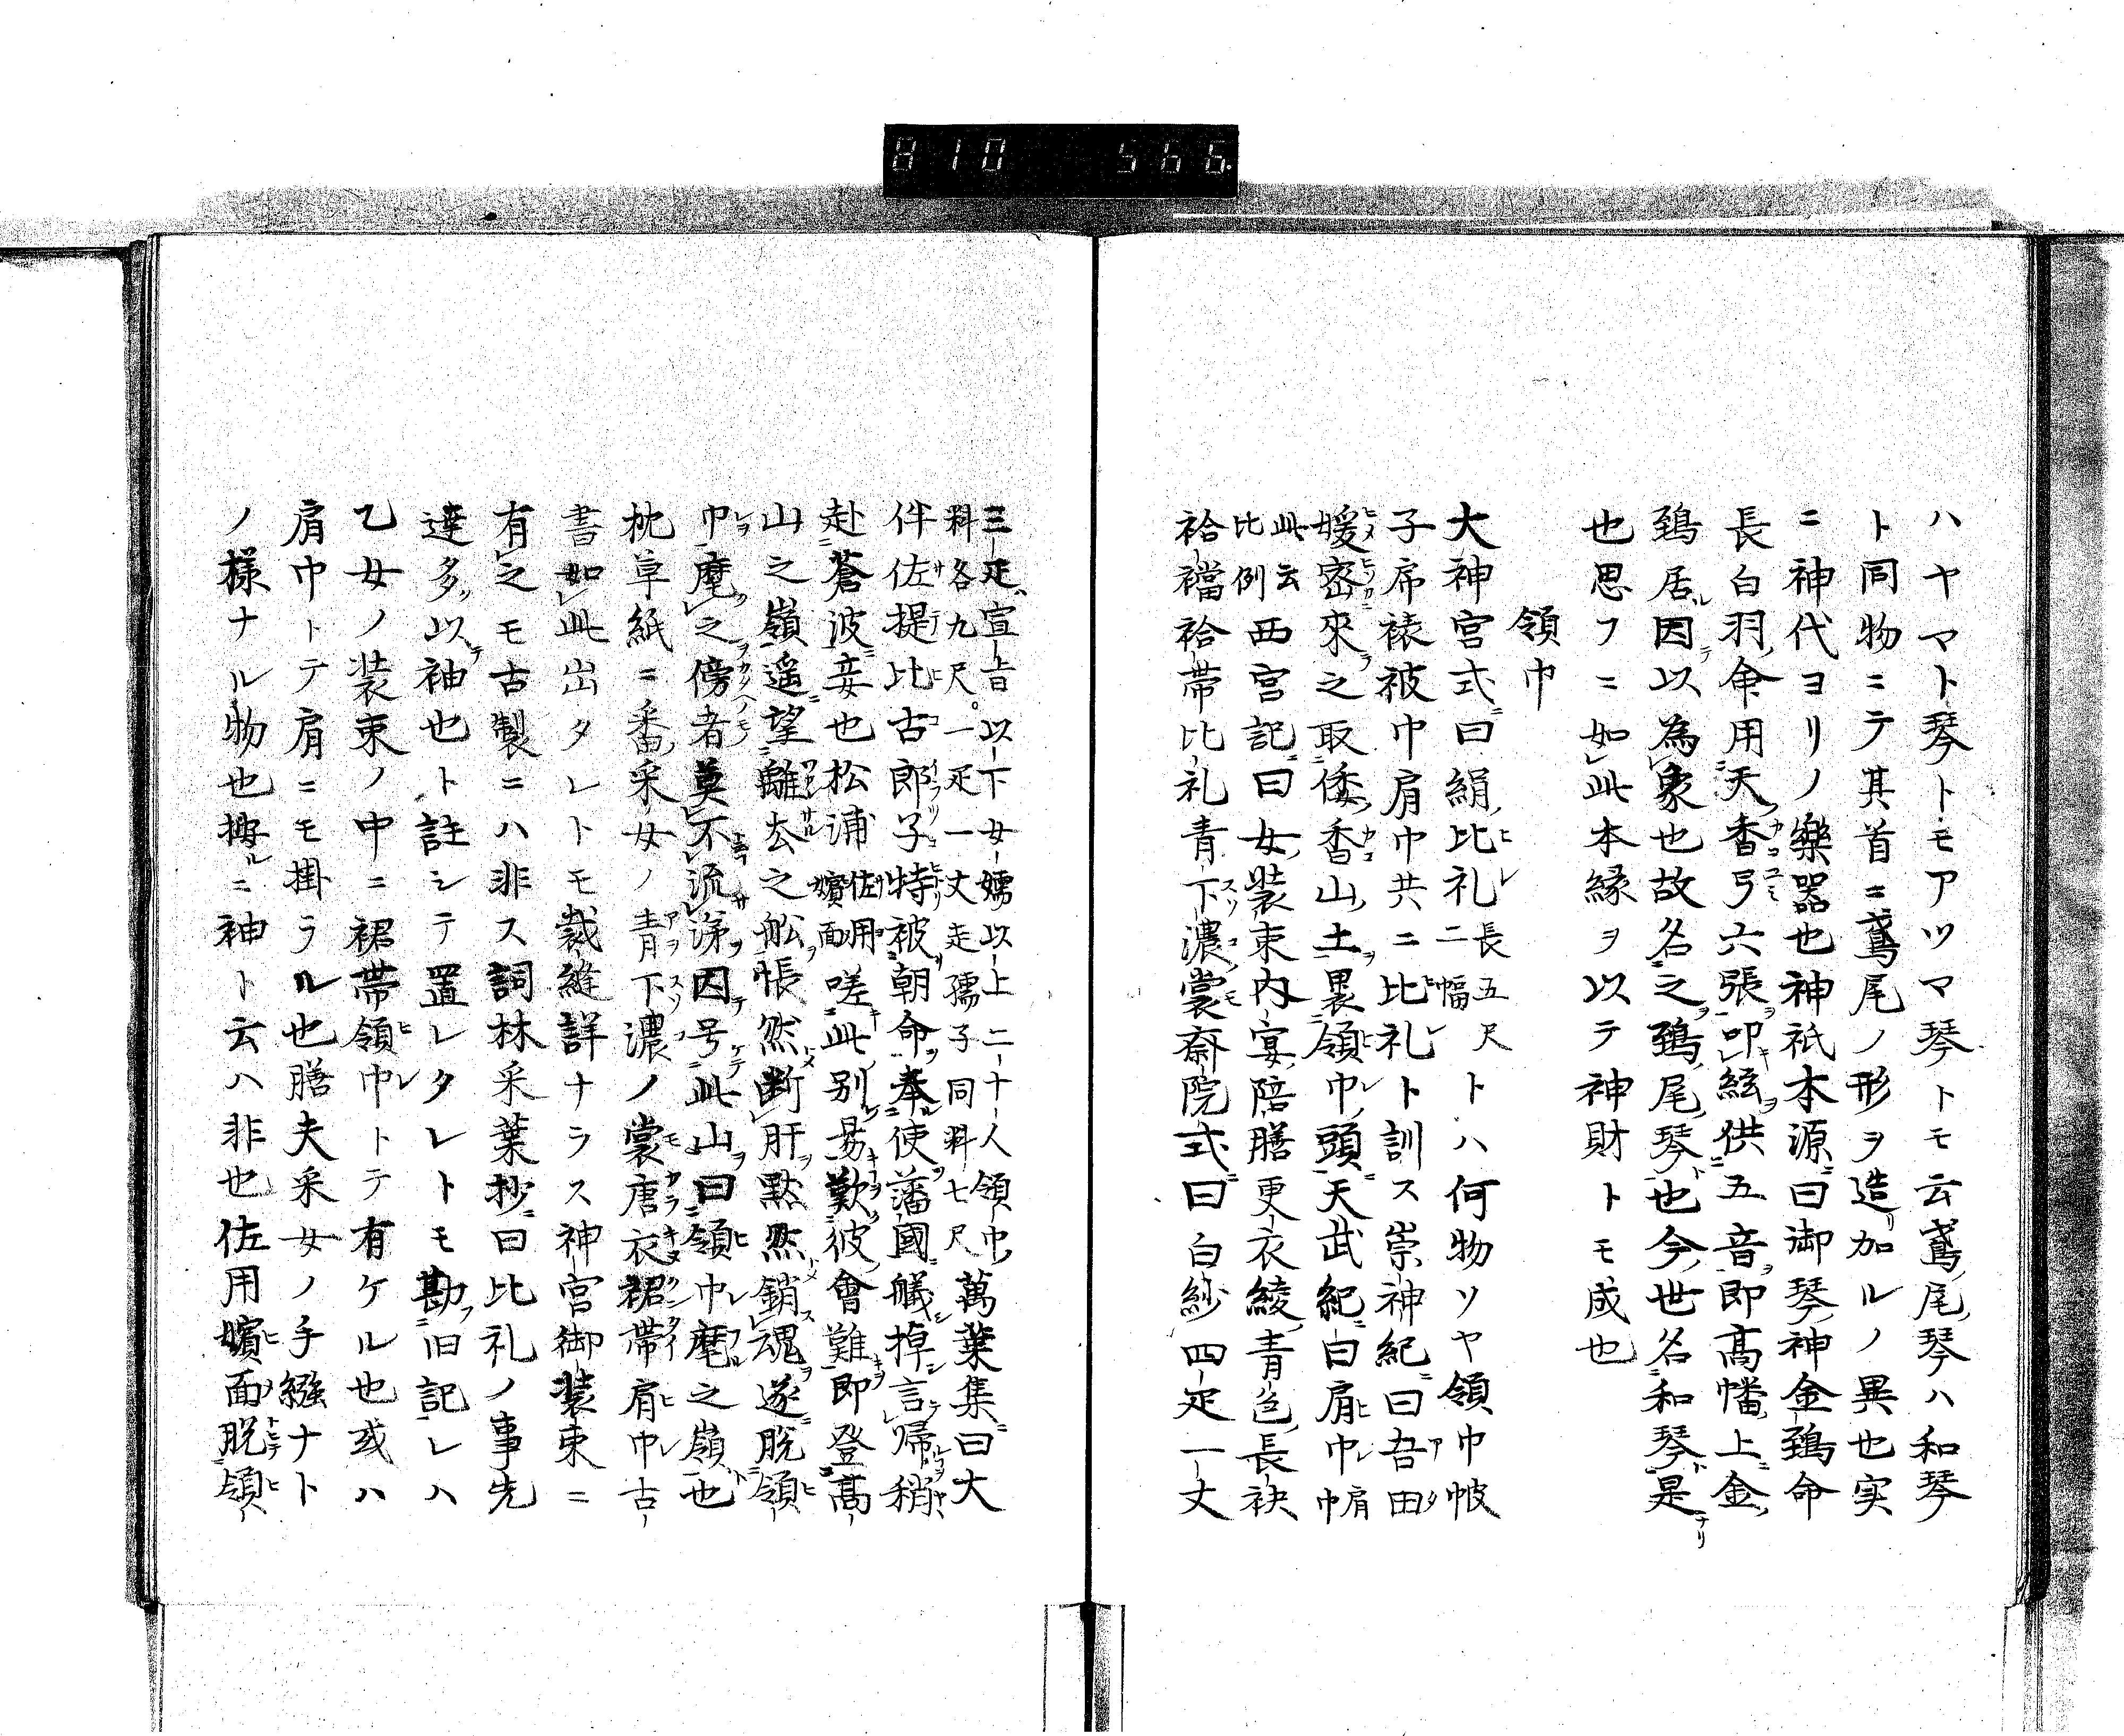 810 566
ハヤマト琴トモアツマ琴トモ云鳶尾琴ハ和琴
ト同物ニテ其首ニ鳶尾ノ形ヲ造リ加ルノ異也実
ニ神代ヨリノ樂器也神祇本源ニ曰御琴神金鵄命
長白羽命用天香弓六張叩絃供五音即高幡上金
鵄居因以為象也故名之鵄尾琴也今世名和琴是
也思フニ如此本縁ヲ以テ神財トモ成也
領巾
大神宮式ニ曰絹比礼長五尺二幅トハ何物ソヤ領巾帔
子帍裱被巾肩巾共ニ比礼ト訓ス崇神紀曰吾田
媛密來之取倭香山土裹領巾頭天武紀曰肩巾肩巾
此云比例西宮記曰女装束内宴陪膳更衣綾青色長袂
袷襠袷帯比礼青下濃裳斎院式曰白紗四疋一丈
三疋宣旨以下女嬬以上二十人領巾
料各九尺。一疋一丈走孺子同料七尺萬葉集曰大
伴佐提比古郎子特被朝命奉使藩國艤棹言帰稍
赴蒼波妾也松浦佐用嬪面嗟此別易歎彼會難即登高
山之嶺遥望離去之舩悵然断肝黙然銷魂遂脱領
巾麾之傍者莫不流涕因号此山曰領巾麾之嶺也
枕草紙ニ番采女ノ青下濃ノ裳唐衣裙帯肩巾古
書如此出タレトモ裁縫詳ナラス神宮御装束ニ
有之モ古製ニハ非ス詞林采葉抄曰比礼ノ事先
達多以袖也ト註シテ置レタレトモ勘旧記レハ
乙女ノ装束ノ中ニ裙帯領巾トテ有ケル也或ハ
肩巾トテ肩ニモ掛ラル也膳夫采女ノ手繦ナト
ノ様ナル物也按ルニ袖ト云ハ非也佐用嬪面脱領